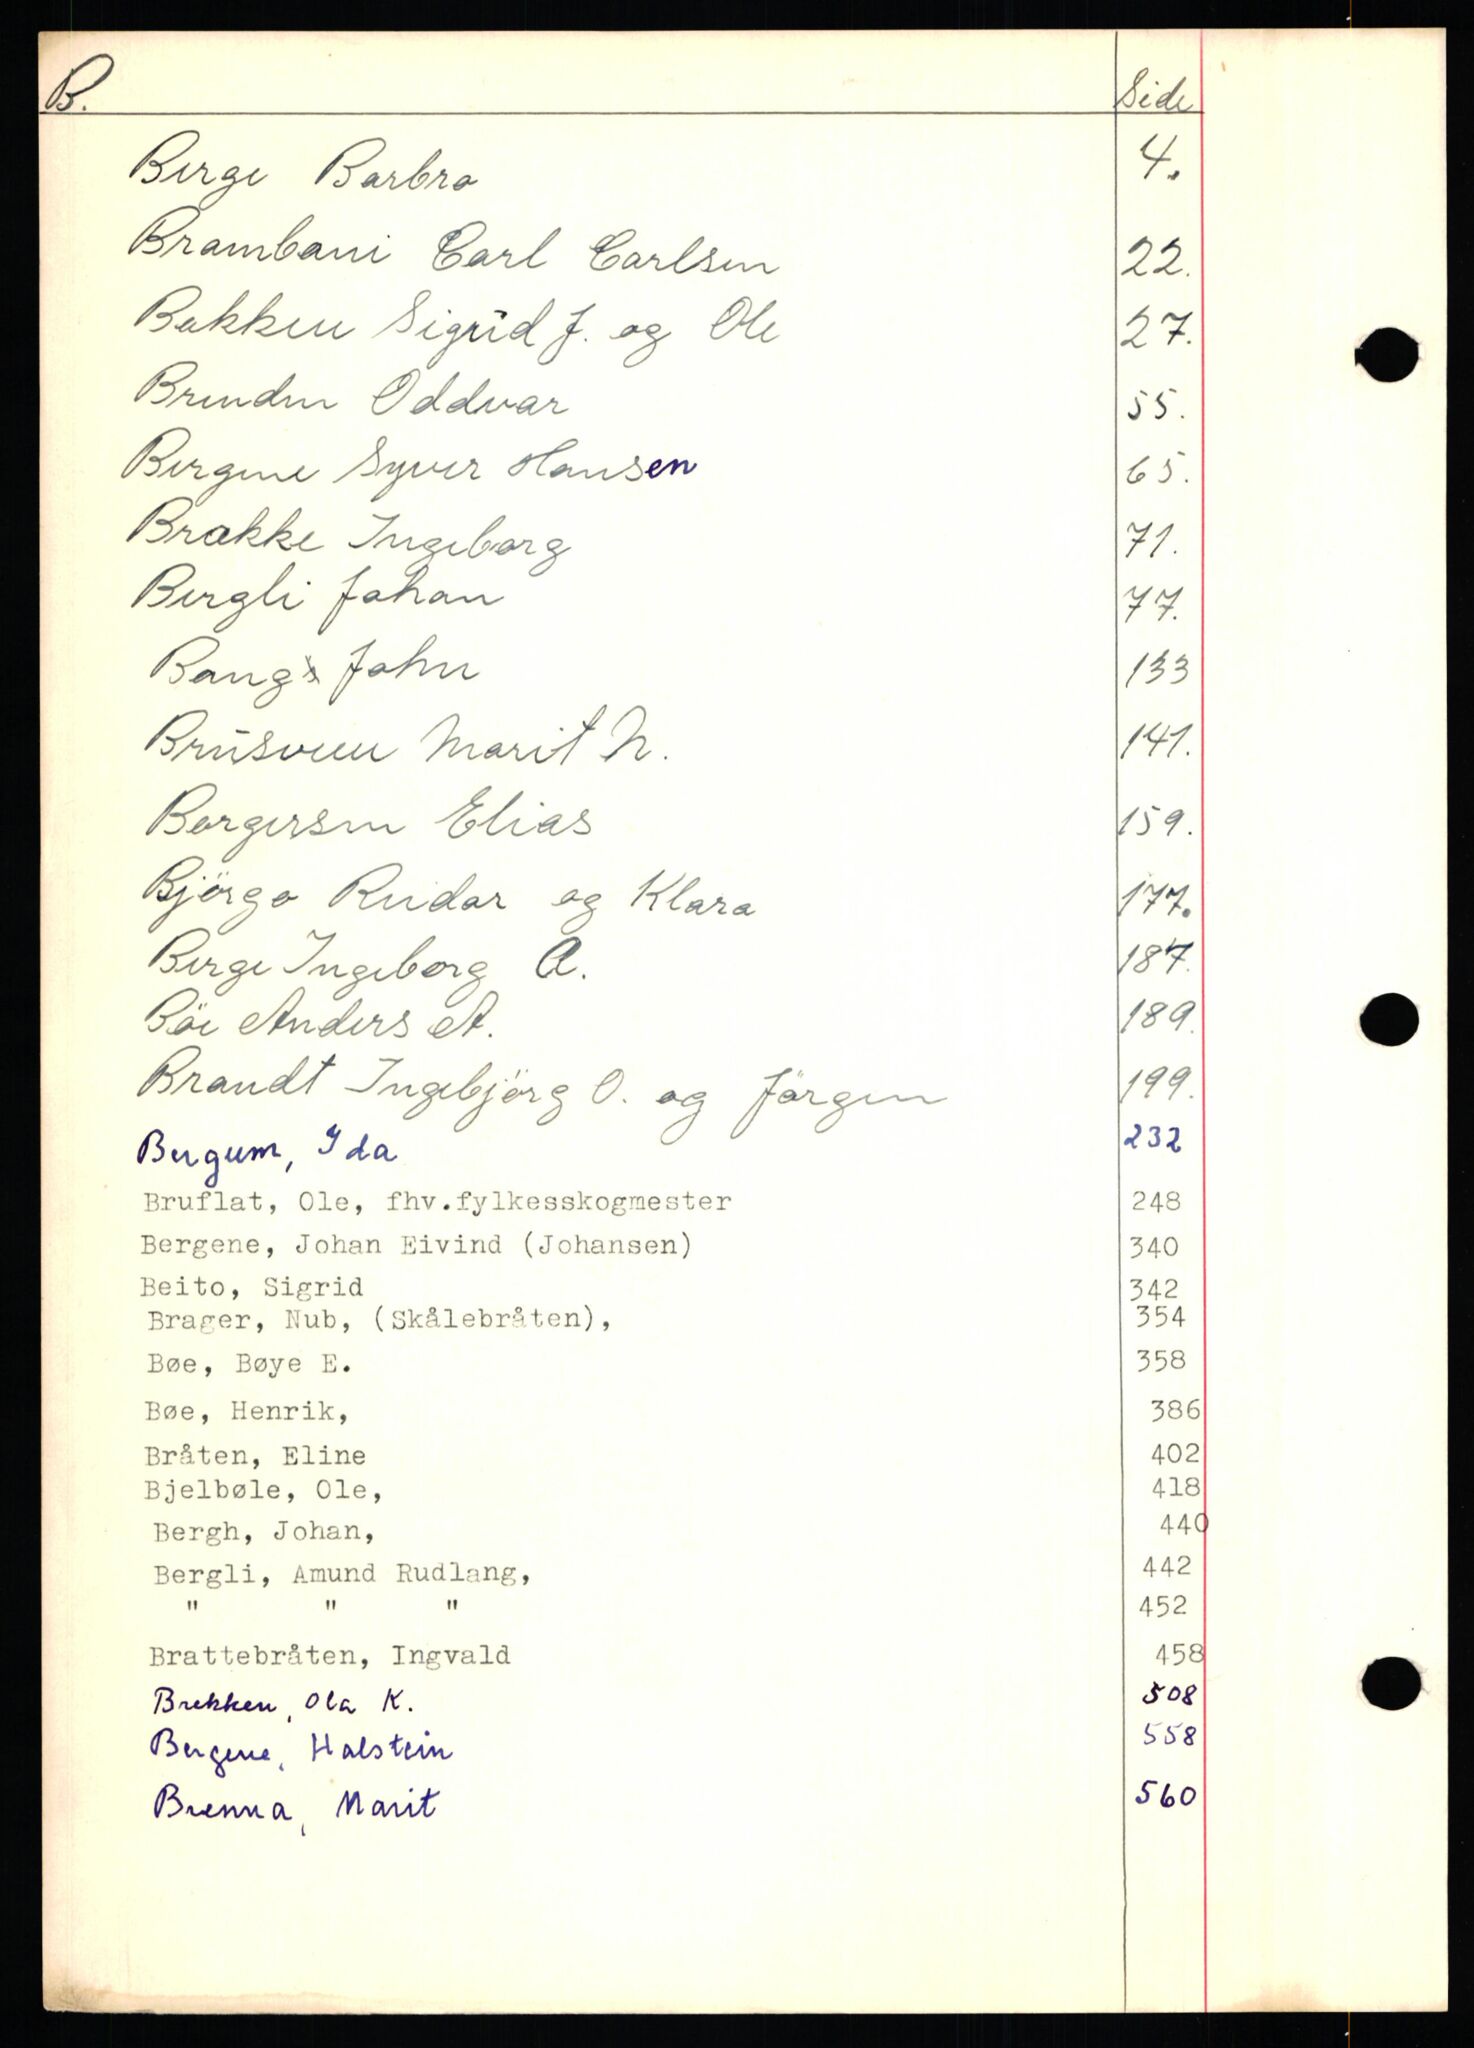 B. Side
Berge Barbro 4.
Brambani Carl Carlsen 22.
Bakken Sigrid J. og Ole 27.
Brenden Oddvar 55.
Bergene Syver Hansen 65.
Brakke Ingeborg 71.
Bergli Johan 77.
Bang John 133
Brusveen Marit N. 141.
Borgersen Elias 159.
Björgo Reidar og Klara 177.
Berge Ingeborg A. 187.
Böe Anders A. 189.
Brandt Ingebjörg O. og Jörgen 199.
Bergum, Ida 232
Bruflat, Ole, fhv.fylkesskogmester 248
Bergene, Johan Eivind (Johansen) 340
Beito, Sigrid 342
Brager, Nub, (Skålebråten), 354
Bøe, Bøye E. 358
Bøe, Henrik, 386
Bråten, Eline 402
Bjelbøle, Ole, 418
Bergh, Johan, 440
Bergli, Amund Rudlang, 442
" " " 452
Brattebråten, Ingvald 458
Brekken, Ola K. 508
Bergene, Halstein 558
Brenna, Marit 560